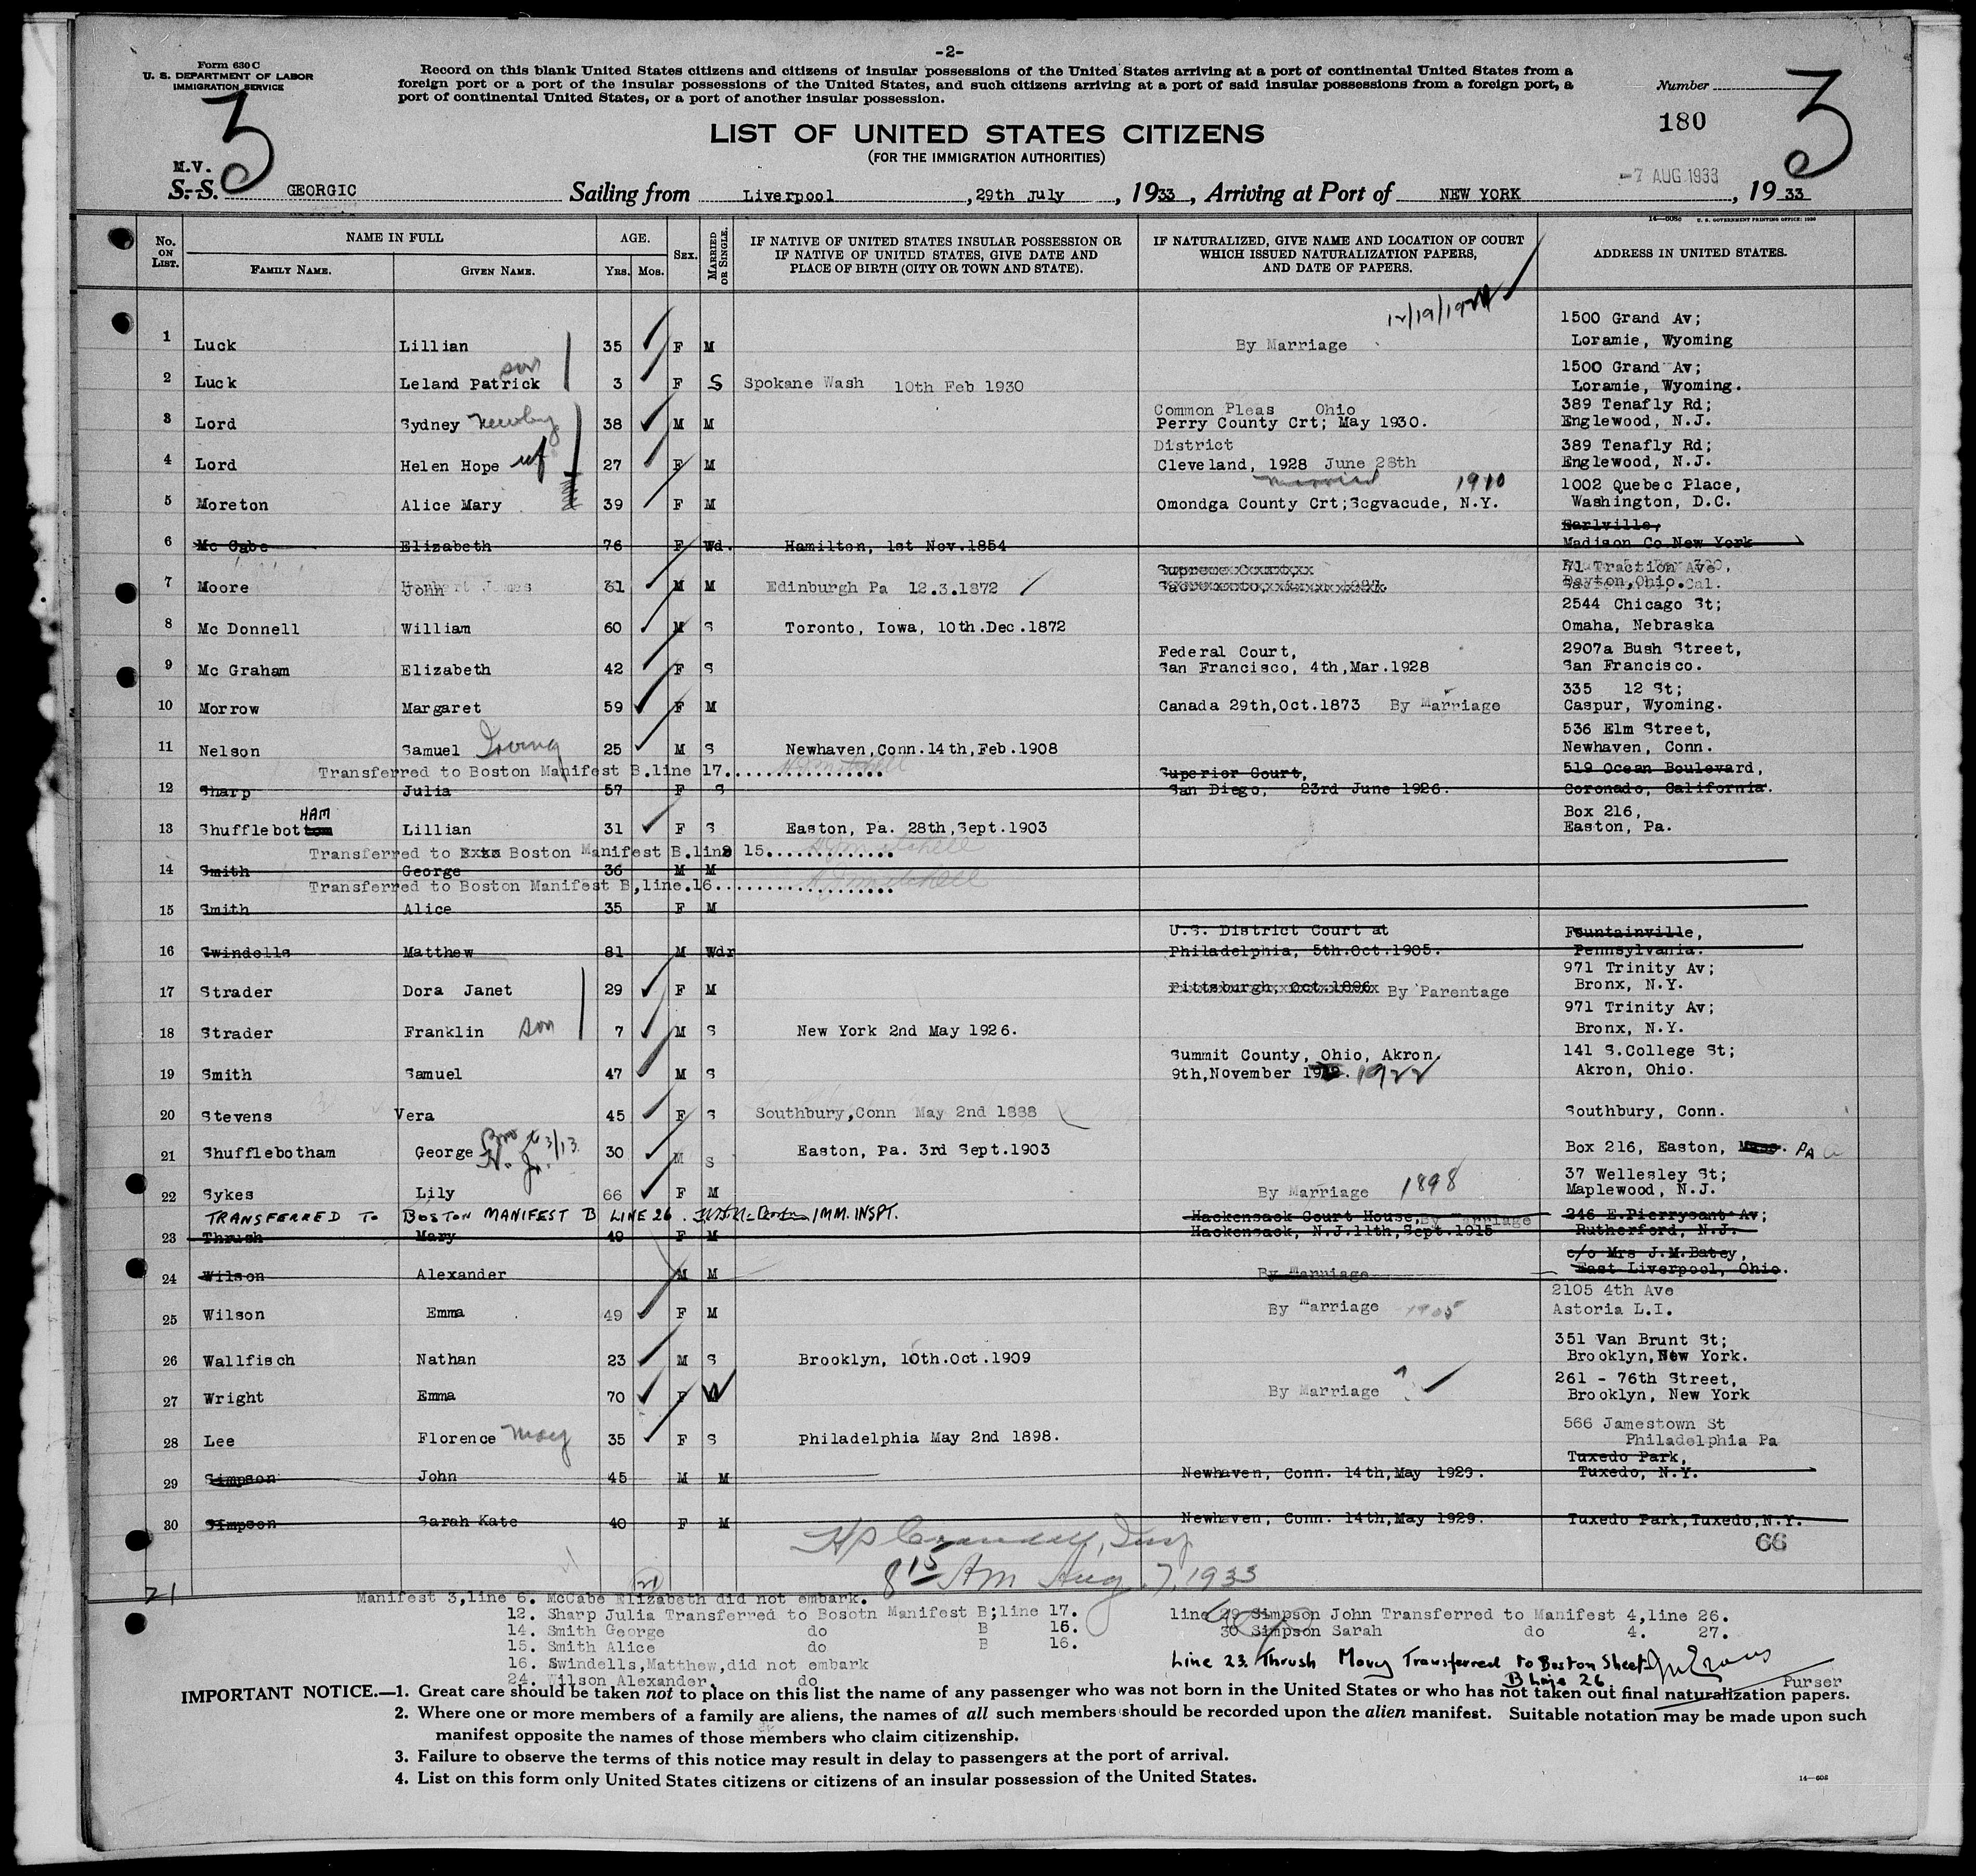 -2-
Form 630 C
U. S. DEPARTMENT OF LABOR
IMMIGRATION SERVICE
Record on this blank United States citizens and citizens of insular possessions of the United States arriving at a port of continental United States from a
foreign port or a port of the insular possessions of the United States, and such citizens arriving at a port of said insular possessions from a foreign port, a
port of continental United States, or a port of another insular possession.
Number
3
3
180
LIST OF UNITED STATES CITIZENS
(FOR THE IMMIGRATION AUTHORITIES)
M.V.
-7 AUG 1933
S.S. GEORGIC Sailing from Liverpool, 29th July, 1933, Arriving at Port of NEW YORK, 1933
U. S. GOVERNMENT PRINTING OFFICE: 1930
No. ON LIST.
NAME IN FULL
FAMILY NAME.
GIVEN NAME.
AGE.
YRS. MOS.
SEX.
MARRIED OR SINGLE.
IF NATIVE OF UNITED STATES INSULAR POSSESSION OR
IF NATIVE OF UNITED STATES, GIVE DATE AND
PLACE OF BIRTH (CITY OR TOWN AND STATE).
IF NATURALIZED, GIVE NAME AND LOCATION OF COURT
WHICH ISSUED NATURALIZATION PAPERS,
AND DATE OF PAPERS.
ADDRESS IN UNITED STATES.
1500 Grand Av;
1 Luck Lillian 35 F M By Marriage Loramie, Wyoming
son 1500 Grand Av;
2 Luck Leland Patrick 3 F S Spokane Wash 10th Feb 1930 Loramie, Wyoming.
Common Pleas Ohio 389 Tenafly Rd;
3 Lord Sydney Newby 38 M M Perry County Crt; May 1930. Englewood, N.J.
District 389 Tenafly Rd;
4 Lord Helen Hope wf 27 F M Cleveland, 1928 June 28th Englewood, N.J.
married 1910 1002 Quebec Place,
5 Moreton Alice Mary 39 F M Omondga County Crt;Scgvacude, N.Y. Washington, D.C.
Earlville,
6 Mc Cabe Elizabeth 76 F Wd. Hamilton, 1st Nov.1854 Madison Co New York
71 Traction Ave
7 Moore John 61 M M Edinburgh Pa 12.3.1872 Dayton,Ohio.
2544 Chicago St;
8 Mc Donnell William 60 M S Toronto, Iowa, 10th.Dec.1872 Omaha, Nebraska
Federal Court, 2907a Bush Street,
9 Mc Graham Elizabeth 42 F S San Francisco, 4th,Mar.1928 San Francisco.
335 12 St;
10 Morrow Margaret 59 F M Canada 29th,Oct.1873 By Marriage Caspur, Wyoming.
536 Elm Street,
11 Nelson Samuel Irving 25 M S Newhaven,Conn.14th,Feb.1908 Newhaven, Conn.
Transferred to Boston Manifest B.line 17................
Superior Court, 519 Ocean Boulevard,
12 Sharp Julia 57 F S San Diego, 23rd June 1926. Coronado, California.
HAM Box 216,
13 Shufflebottom Lillian 31 F S Easton, Pa. 28th,Sept.1903 Easton, Pa.
Transferred to Boston Manifest B.line 15.............
14 Smith George 36 M M
Transferred to Boston Manifest B,line.16..................
15 Smith Alice 35 F M
U.S. District Court at Fountainville,
16 Swindells Matthew 81 M Wdr Philadelphia, 5th.Oct.1905. Pennsylvania.
971 Trinity Av;
17 Strader Dora Janet 29 F M Pittsburgh, Oct.1896 By Parentage Bronx, N.Y.
971 Trinity Av;
18 Strader Franklin son 7 M S New York 2nd May 1926. Bronx, N.Y.
Summit County, Ohio, Akron, 141 S.College St;
19 Smith Samuel 47 M S 9th,November 1922 Akron, Ohio.
20 Stevens Vera 45 F S Southbury,Conn May 2nd 1888 Southbury, Conn.
21 Shufflebotham George 30 M S Easton, Pa. 3rd Sept.1903 Box 216, Easton, PA
37 Wellesley St;
22 Sykes Lily 66 F M By Marriage 1898 Maplewood, N.J.
TRANSFERRED TO BOSTON MANIFEST B LINE 26. IMM. INSPT.
Hackensack Court House,By Marriage 246 E.Pierrysant Av;
23 Thrush Mary 49 F M Hackensack, N.J.11th,Sept.1915 Rutherford, N.J.
c/o Mrs J.M.Batey,
24 Wilson Alexander M M By Marriage East Liverpool, Ohio.
2105 4th Ave
25 Wilson Emma 49 F M By marriage 1905 Astoria L.I.
351 Van Brunt St;
26 Wallfisch Nathan 23 M S Brooklyn, 10th.Oct.1909 Brooklyn,New York.
261 - 76th Street,
27 Wright Emma 70 F W By Marriage ? Brooklyn, New York
566 Jamestown St
28 Lee Florence May 35 F S Philadelphia May 2nd 1898. Philadelphia Pa
Tuxedo Park,
29 Simpson John 45 M M Newhaven, Conn. 14th,May 1929. Tuxedo, N.Y.
30 Simpson Sarah Kate 40 F M Newhaven, Conn. 14th,May 1929. Tuxedo Park,Tuxedo,N.Y.
66
8 15 AM Aug. 7, 1933
21
21
Manifest 3,line 6. McCabe Elizabeth did not embark.
12. Sharp Julia Transferred to Bosotn Manifest B;line 17.
14. Smith George do B 15.
15. Smith Alice do B 16.
16. Swindells,Matthew,did not embark
24. Wilson Alexander, do
line 29 Simpson John Transferred to Manifest 4,line 26.
30 Simpson Sarah do 4. 27.
Line 23. Thrush Mary Transferred to Boston Sheet
B Line 26.
Purser
IMPORTANT NOTICE.—1. Great care should be taken not to place on this list the name of any passenger who was not born in the United States or who has not taken out final naturalization papers.
2. Where one or more members of a family are aliens, the names of all such members should be recorded upon the alien manifest. Suitable notation may be made upon such
manifest opposite the names of those members who claim citizenship.
3. Failure to observe the terms of this notice may result in delay to passengers at the port of arrival.
4. List on this form only United States citizens or citizens of an insular possession of the United States.